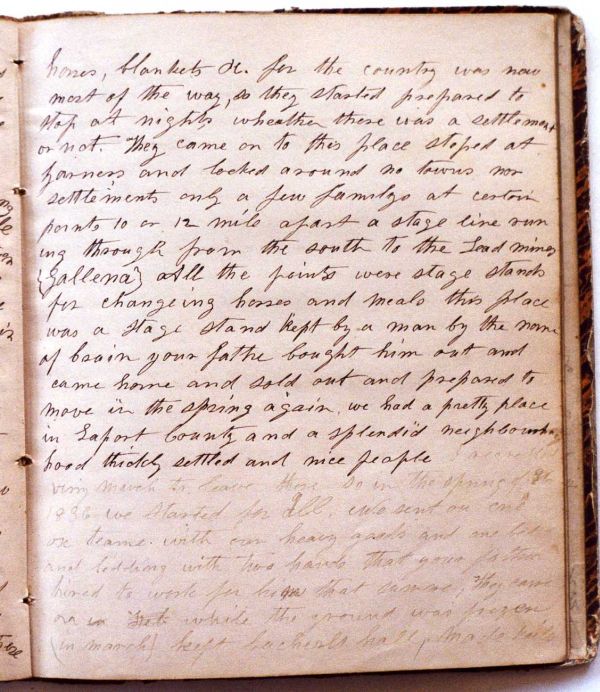 horses, blankets &c. for the country was new
most of the way, so they started prepared to
stop at nights wheather there was a settlement
or not. They came on to this place stoped at
and looked around no towns nor
settlements only a few familys at certain
points 10 or 12 mile apart a stage line run
ing through from the south to the Lead mines
(Gallena) All the points were stage stands
for changeing horses and meals this place
was a stage stand kept by a man by the name
of brain your fathe bought him out and
came home and sold out and prepared to
move in the spring again. we had a pretty place
in Laport County and a splendid neighbour
hood thickly settled and nice people
much to leave there so in the spring of
1836 we started for Ill. we sent on one
ox teame with our heavy goods and
and bedding with two hands that your father
hired to work for him that summer, They came
on while the ground was frozen
(in march) kept hall, made